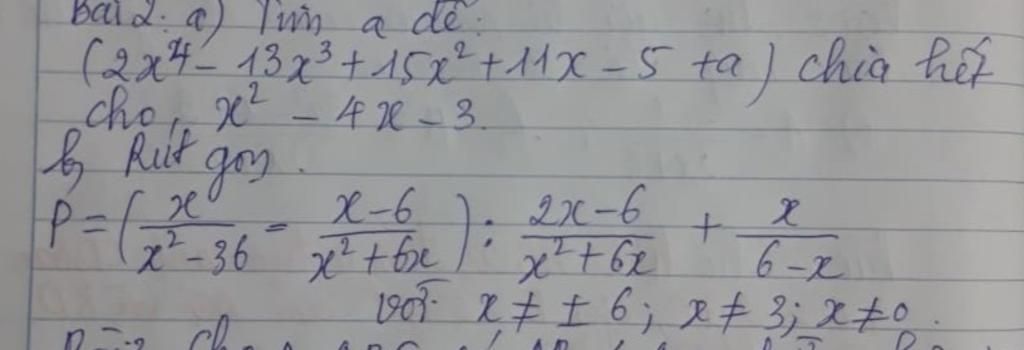 Bài 2: a) Tìm a để:
(2x⁴ - 13x³ + 15x² + 11x - 5 + a) chia hết
cho x² - 4x - 3.
b, Rút gọn.
P = (x/(x² - 36) - (x - 6)/(x² + 6x)) : (2x - 6)/(x² + 6x) + x/(6 - x)
với x ≠ ± 6; x ≠ 3; x ≠ 0.